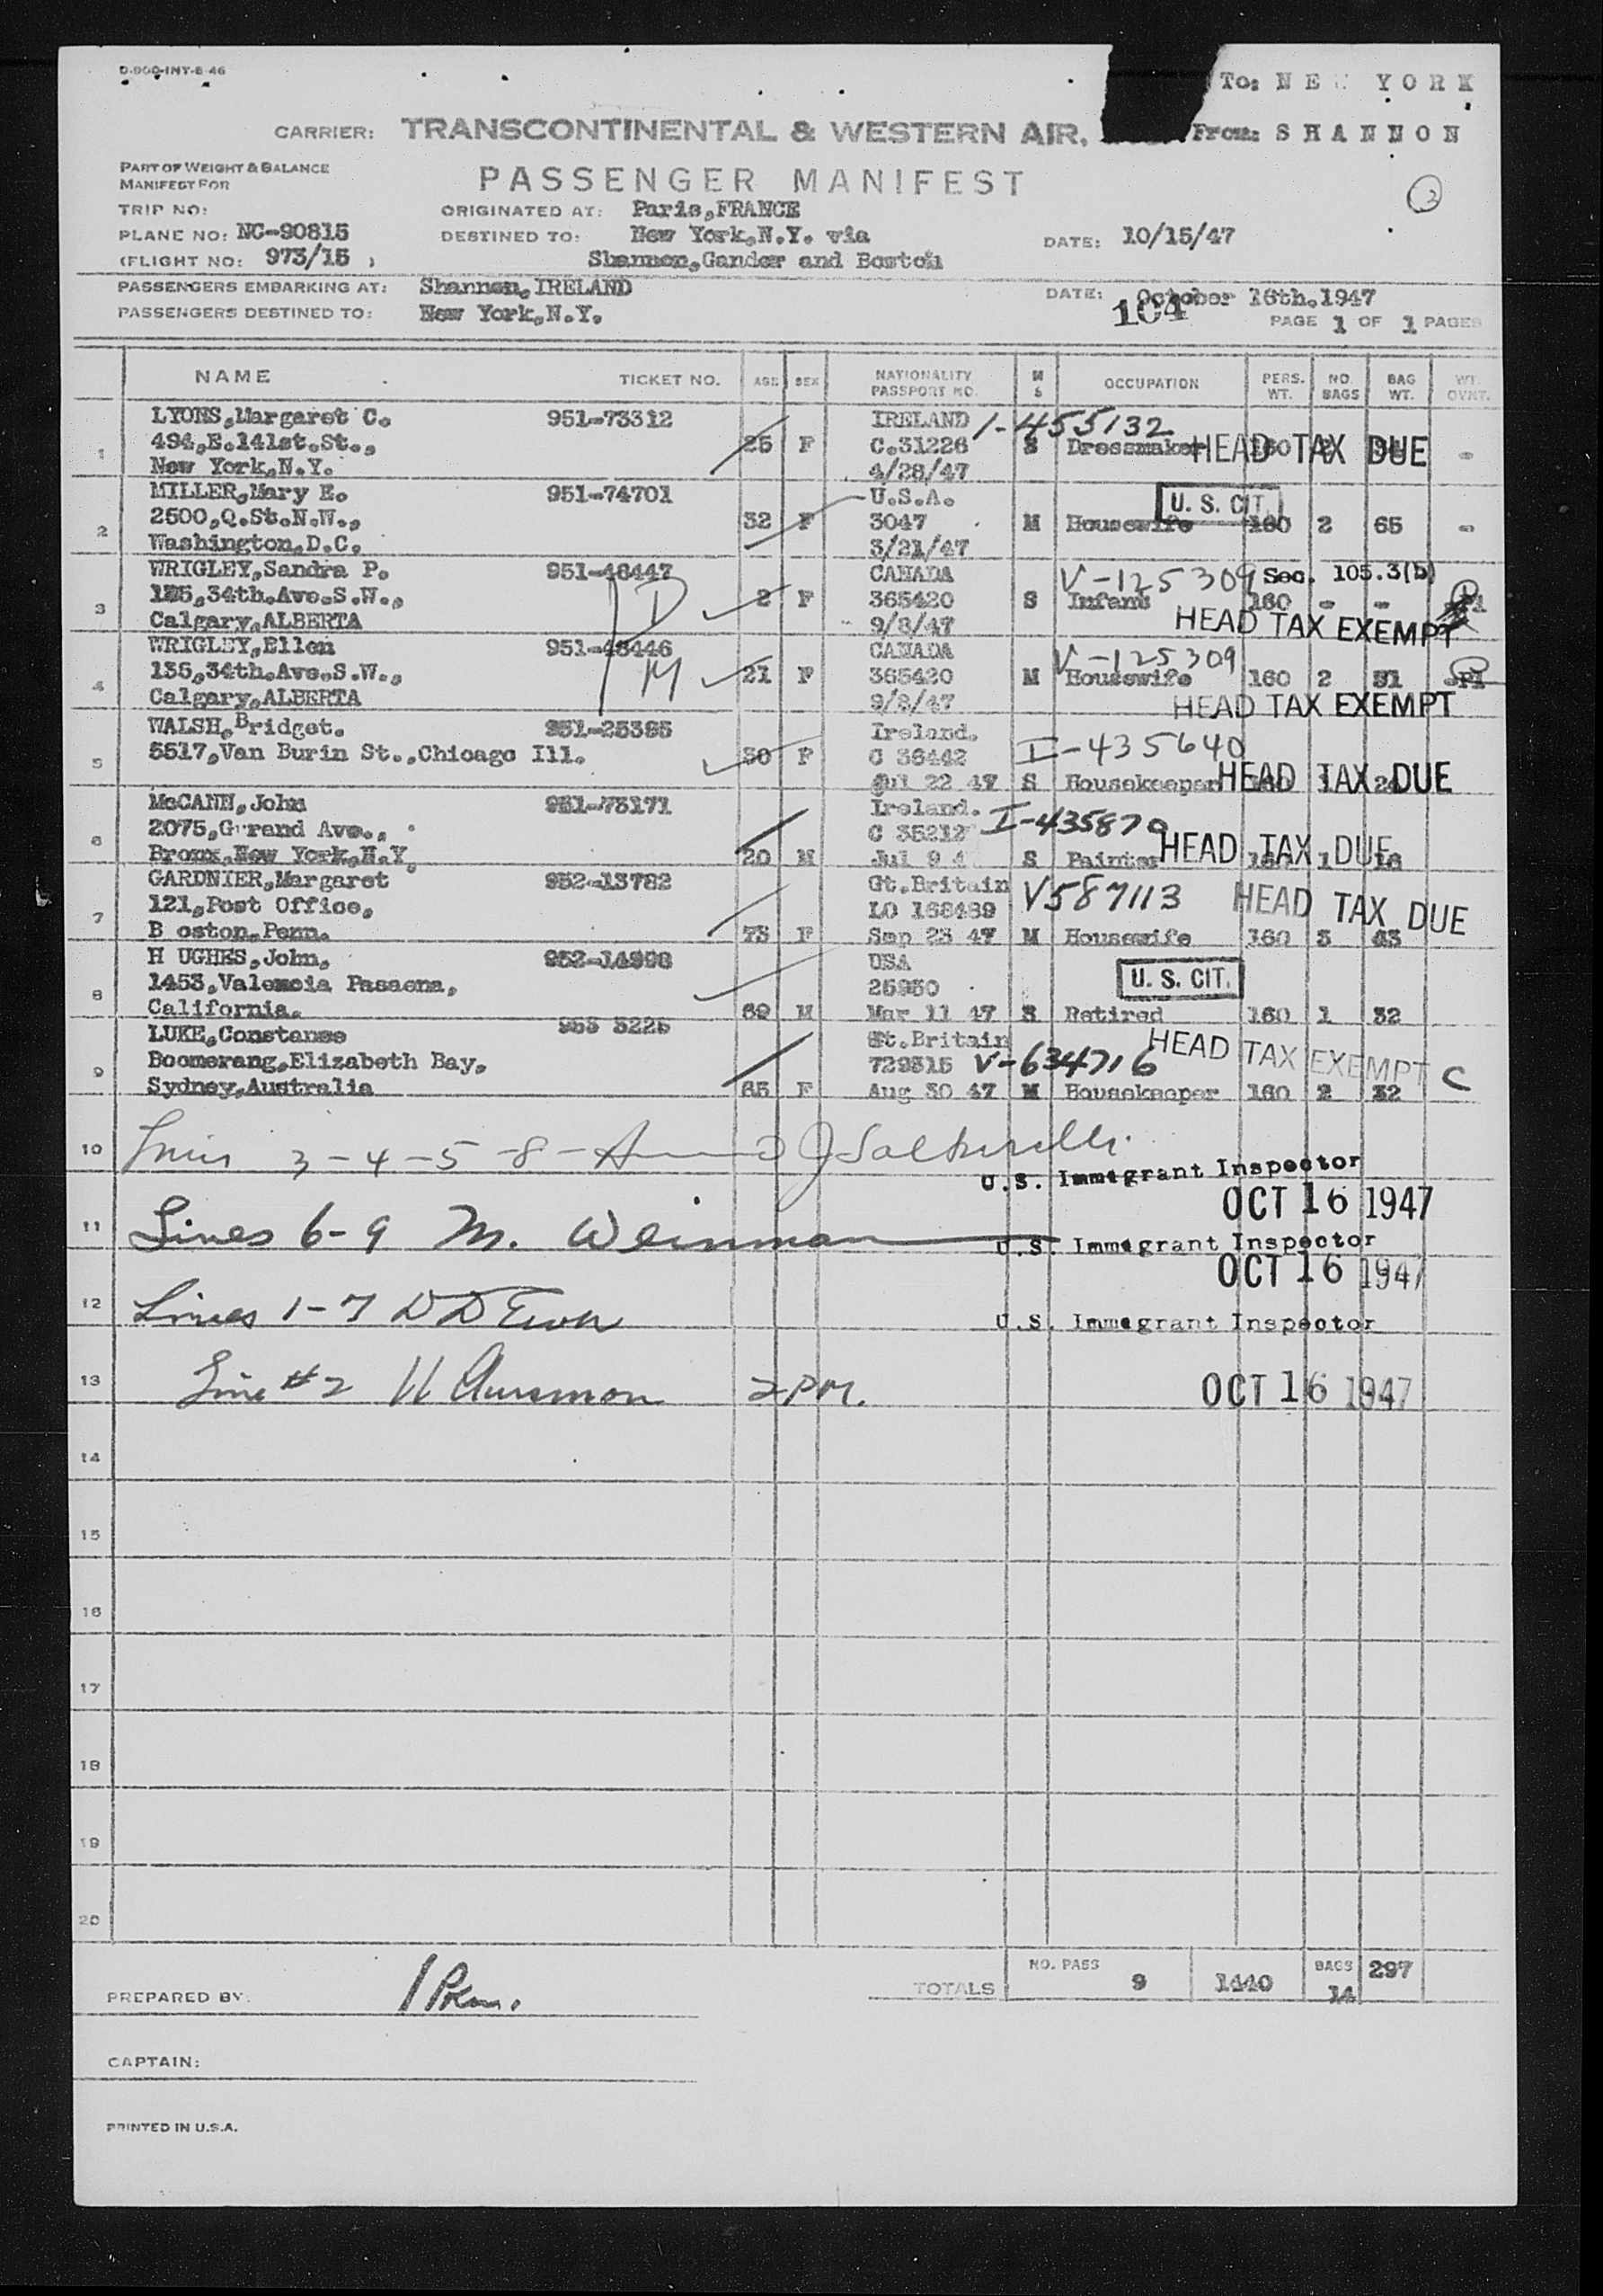 D-900-INT-8-46
To: NEW YORK
CARRIER: TRANSCONTINENTAL & WESTERN AIR, From: SHANNON
PART OF WEIGHT & BALANCE
MANIFEST FOR
PASSENGER MANIFEST
3
TRIP NO: ORIGINATED AT: Paris,FRANCE
PLANE NO: NC-90815 DESTINED TO: New York,N.Y. via DATE: 10/15/47
(FLIGHT NO: 973/15 ) Shannon,Gander and Boston
PASSENGERS EMBARKING AT: Shannon,IRELAND DATE: October 16th.1947
104
PASSENGERS DESTINED TO: New York,N.Y. PAGE 1 OF 1 PAGES
NAME TICKET NO. AGE SEX NATIONALITY PASSPORT NO. M S OCCUPATION PERS. WT. NO. BAGS BAG WT. WT. OVNT.
LYONS,Margaret C. 951-73312 IRELAND 1-455132
1 494,E.141st.St., 25 F C.31226 S Dressmaker 160 HEAD TAX DUE -
New York,N.Y. 4/28/47
MILLER,Mary E. 951-74701 U.S.A. U. S. CIT.
2 2500,Q.St.N.W., 32 F 3047 M Housewife 160 2 65 -
Washington,D.C. 3/21/47
WRIGLEY,Sandra P. 951-48447 CANADA V-125309 Sec. 105.3(b)
3 135,34th.Ave.S.W., D 2 F 365420 S Infant 160 - -
Calgary,ALBERTA 9/8/47 HEAD TAX EXEMPT
WRIGLEY,Ellen 951-48446 CANADA V-125309
4 135,34th.Ave.S.W., M 21 F 365420 M Housewife 160 2 31
Calgary,ALBERTA 9/8/47 HEAD TAX EXEMPT
WALSH,Bridget. 951-25395 Ireland. I-435640
5 5517,Van Burin St.,Chicago Ill. 30 F C 38442
Jul 22 47 S Housekeeper 160 1 24 HEAD TAX DUE
McCANN,John 951-73171 Ireland. I-435870
6 2075,Grand Ave., C 35212 HEAD TAX DUE
Bronx,New York,N.Y. 20 M Jul 9 4 S Painter 160 1 16
GARDNIER,Margaret 952-13782 Gt.Britain V587113 HEAD TAX DUE
7 121,Post Office, LO 168489
B oston,Penn. 73 F Sep 23 47 M Housewife 160 3 43
H UGHES,John, 952-14998 USA U. S. CIT.
8 1453,Valencia Pasaena, 25950
California. 69 M Mar 11 47 S Retired 160 1 32
LUKE,Constanse 953 3225 Gt.Britain HEAD TAX EXEMPT C
9 Boomerang,Elizabeth Bay, 729315 V-634716
Sydney,Australia 65 F Aug 30 47 M Housekeeper 160 2 32
10 Lines 3-4-5-8-
U.S. Immigrant Inspector
OCT 16 1947
11 Lines 6-9 M. Weinman U.S. Immigrant Inspector
OCT 16 1947
12 Lines 1-7 U.S. Immigrant Inspector
13 Line #2 2PM. OCT 16 1947
14
15
16
17
18
19
20
TOTALS NO. PASS 9 1440 BAGS 14 297
PREPARED BY:
CAPTAIN:
PRINTED IN U.S.A.